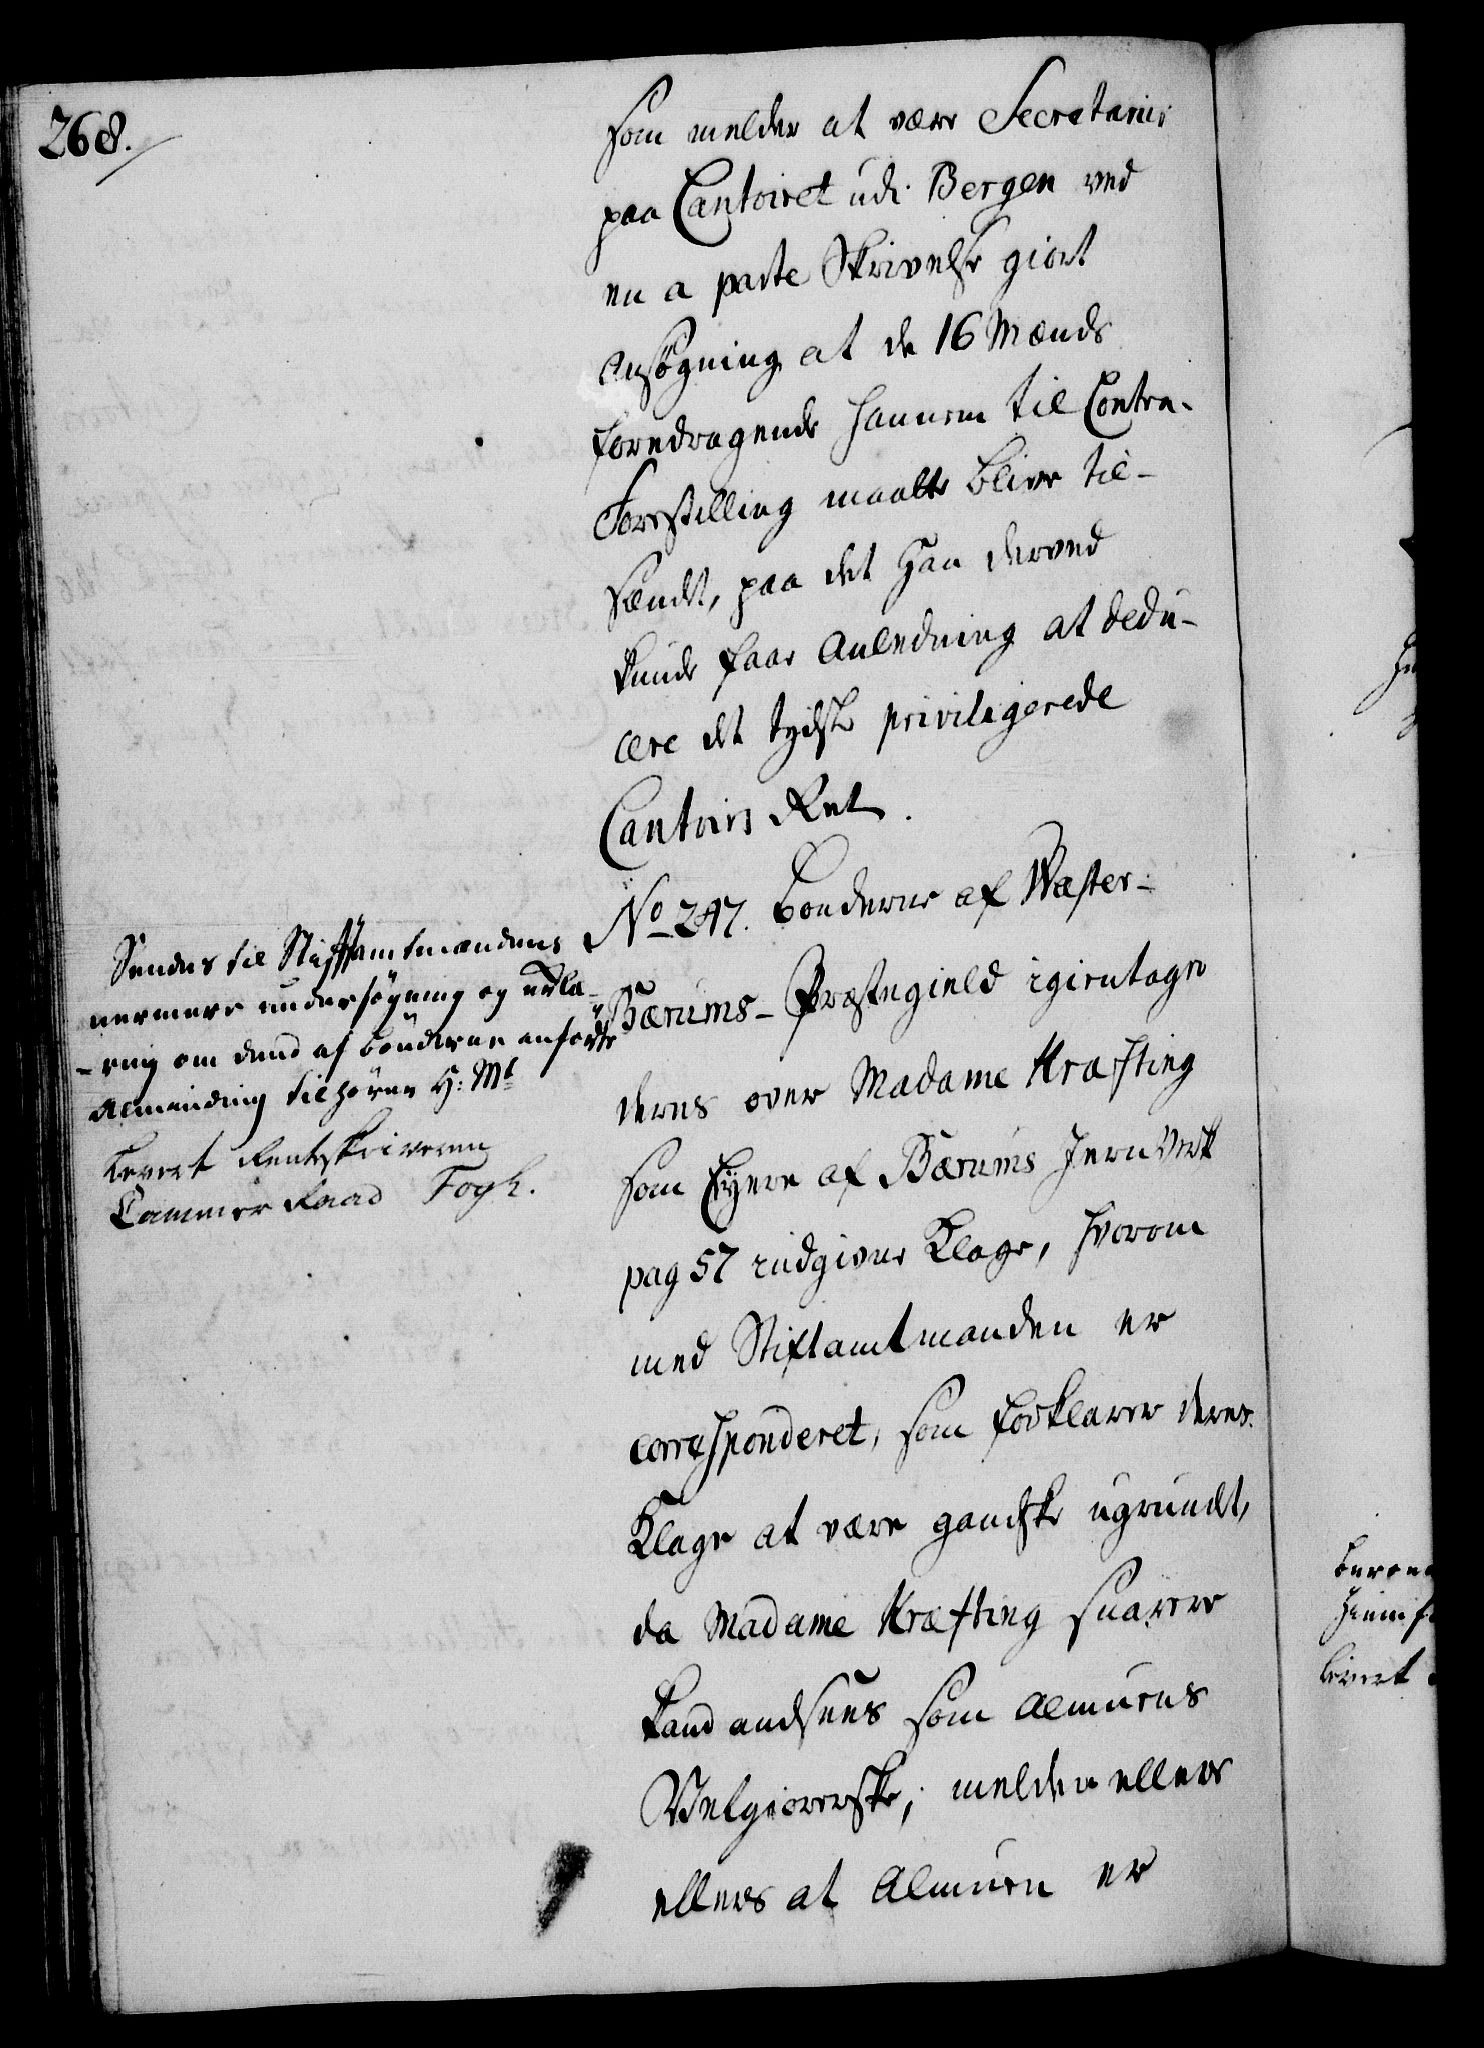 268.
som melder at være Secretarius
paa Cantoiret udi Bergen ved
en a parte Skrivelse giort
Ansøgning at de 16 Mænds
foredragende hannem til Contra-
Forestilling maatte blive til-
sendt, paa det Han derved
kunde faae Anledning at dedu-
cere det tydske privilegerede
Cantoirs Ret.
No 247. Bønderne af Wester-
Bærums-Præstegield igientager
deres over Madame Kræfting
som Eyere af Bærums Jern Verk
pag 57 indgivne Klage, hvorom
med Stiftamtmanden er
correshponderet, som forklarer deres
Klage at være gandske ugrundt,
da Madame Kræfting snarere
kand andsees som Almuens
Velgiørerske; melder ellers
ellers at Almuen er
Sendes til Stiftamtmandens
nermere undersøgning og erklæ-
-ring om dend af bønderne anførte
Alminding tilhører H: Mt
Levert Rentskriveren
Cammer Raad Fogh.